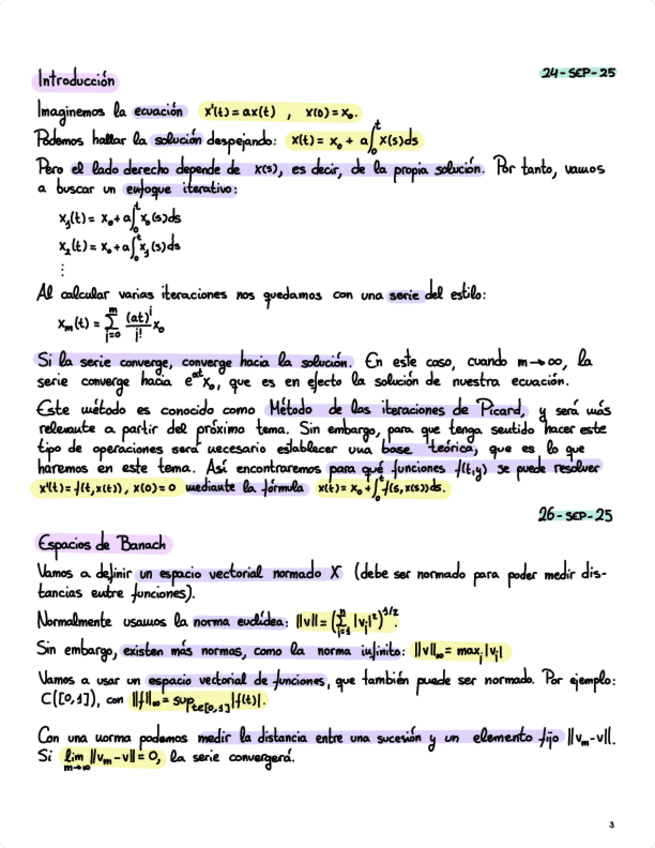 24-SEP-25
Introducción
Imaginemos la ecuación x'(t) = ax(t) , x(0) = x₀.
Podemos hallar la solución despejando: x(t) = x₀ + a∫₀ᵗ x(s)ds
Pero el lado derecho depende de x(s), es decir, de la propia solución. Por tanto, vamos
a buscar un enfoque iterativo:
x₁(t) = x₀ + a∫₀ᵗ x₀(s)ds
x₂(t) = x₀ + a∫₀ᵗ x₁(s)ds
⋮
Al calcular varias iteraciones nos quedamos con una serie del estilo:
xₘ(t) = ∑ᵐⱼ₌₀ (at)ʲ/j! x₀
Si la serie converge, converge hacia la solución. En este caso, cuando m→∞, la
serie converge hacia eᵃᵗx₀, que es en efecto la solución de nuestra ecuación.
Este método es conocido como Método de las iteraciones de Picard, y será más
relevante a partir del próximo tema. Sin embargo, para que tenga sentido hacer este
tipo de operaciones será necesario establecer una base teórica, que es lo que
haremos en este tema. Así encontraremos para qué funciones f(t,y) se puede resolver
x'(t) = f(t,x(t)), x(0) = 0 mediante la fórmula x(t) = x₀ + ∫₀ᵗ f(s,x(s))ds.
26-SEP-25
Espacios de Banach
Vamos a definir un espacio vectorial normado X (debe ser normado para poder medir dis-
tancias entre funciones).
Normalmente usamos la norma euclídea: ||v|| = (∑ⁿⱼ₌₁ |vⱼ|²)^1/2.
Sin embargo, existen más normas, como la norma infinito: ||v||∞ = maxⱼ|vⱼ|
Vamos a usar un espacio vectorial de funciones, que también puede ser normado. Por ejemplo:
C([0,1]), con ||f||∞ = sup t∈[0,1] |f(t)|.
Con una norma podemos medir la distancia entre una sucesión y un elemento fijo ||vₘ-v||.
Si lim m→∞ ||vₘ-v|| = 0, la serie convergerá.
3